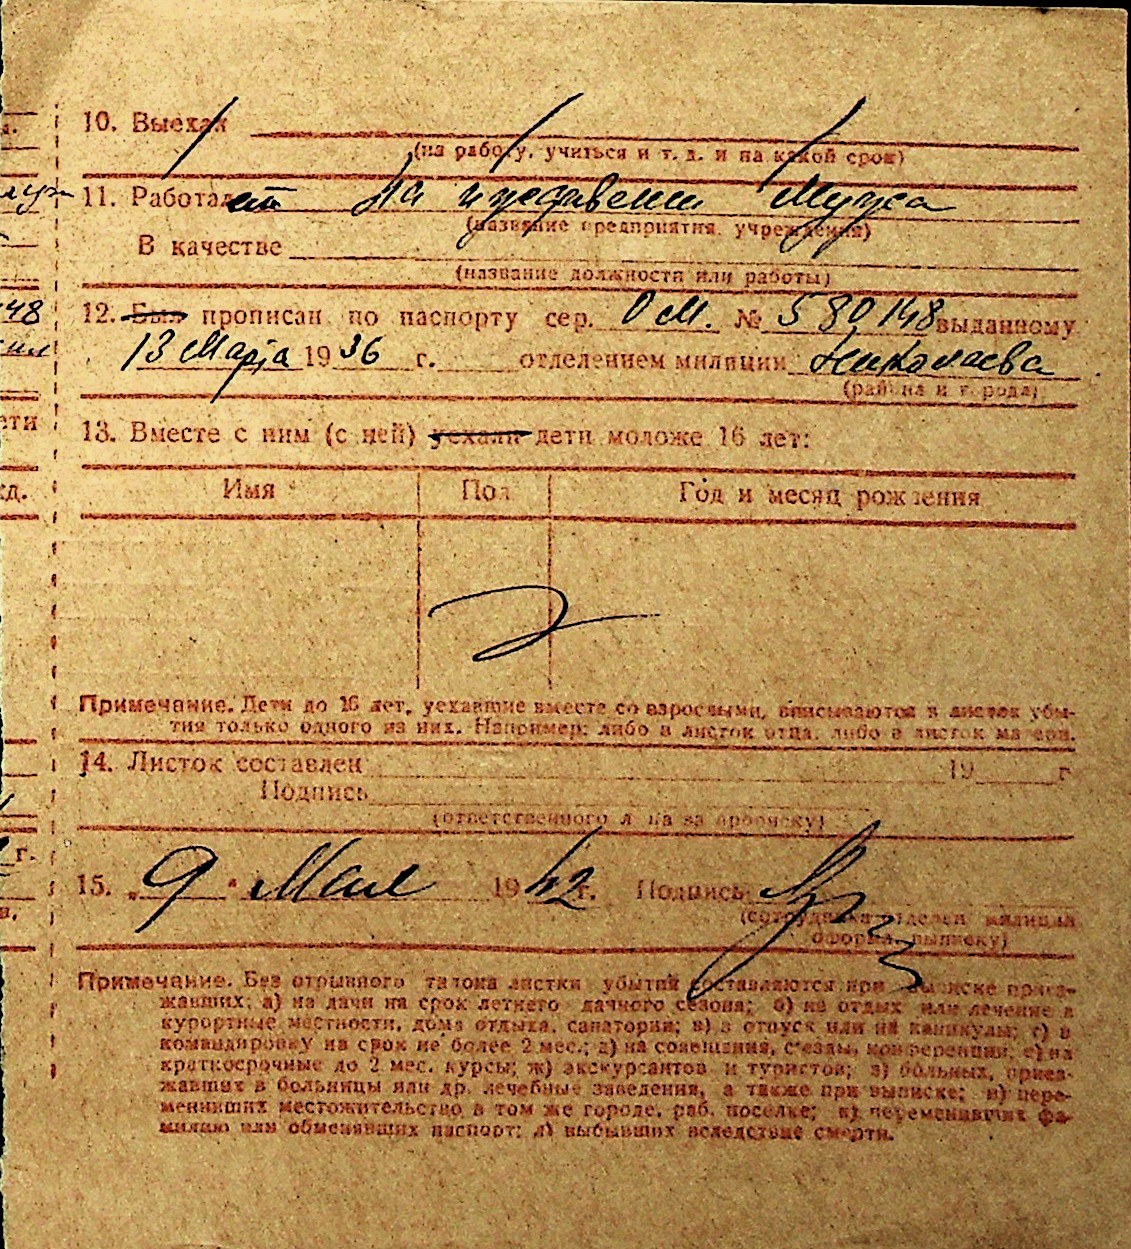 10. Выехал
(на работу, учиться и т. д. и на какой срок)
11. Работает На иждивении Мужа
(название предприятия, учреждения)
В качестве
(название должности или работы)
12. Был прописан по паспорту сер. ОМ. № 580148 выданному
13 Марта 1936 г. отделением милиции Николаева
(района и города)
13. Вместе с ним (с ней) уехали дети моложе 16 лет:
Имя Пол Год и месяц рождения
Примечание. Дети до 16 лет, уехавшие вместе со взрослыми, вписываются в листок убы-
тия только одного из них. Например: либо в листок отца, либо в листок матери.
14. Листок составлен 19 г
Подпись
(ответственного л на за прописку)
15. „9" Мая 1942 г. Подпись
(сотрудника отделен милиции
оформ. выписку)
Примечание. Без отрывного талона листки убытия составляются при выписке приез-
жавших: а) на дачи на срок летнего дачного сезона; б) на отдых или лечение в
курортные местности, дома отдыха, санатории; в) в отпуск или на каникулы; г) в
командировку на срок не более 2 мес.; д) на совещания, съезды, конференции; е) на
краткосрочные до 2 мес. курсы; ж) экскурсантов и туристов; з) больных, приез-
жавших в больницы или др. лечебные заведения, а также при выписке; и) пере-
менивших местожительство в том же городе, раб. поселке; к) переменивших фа-
милию или обменявших паспорт; л) выбывших вследствие смерти.